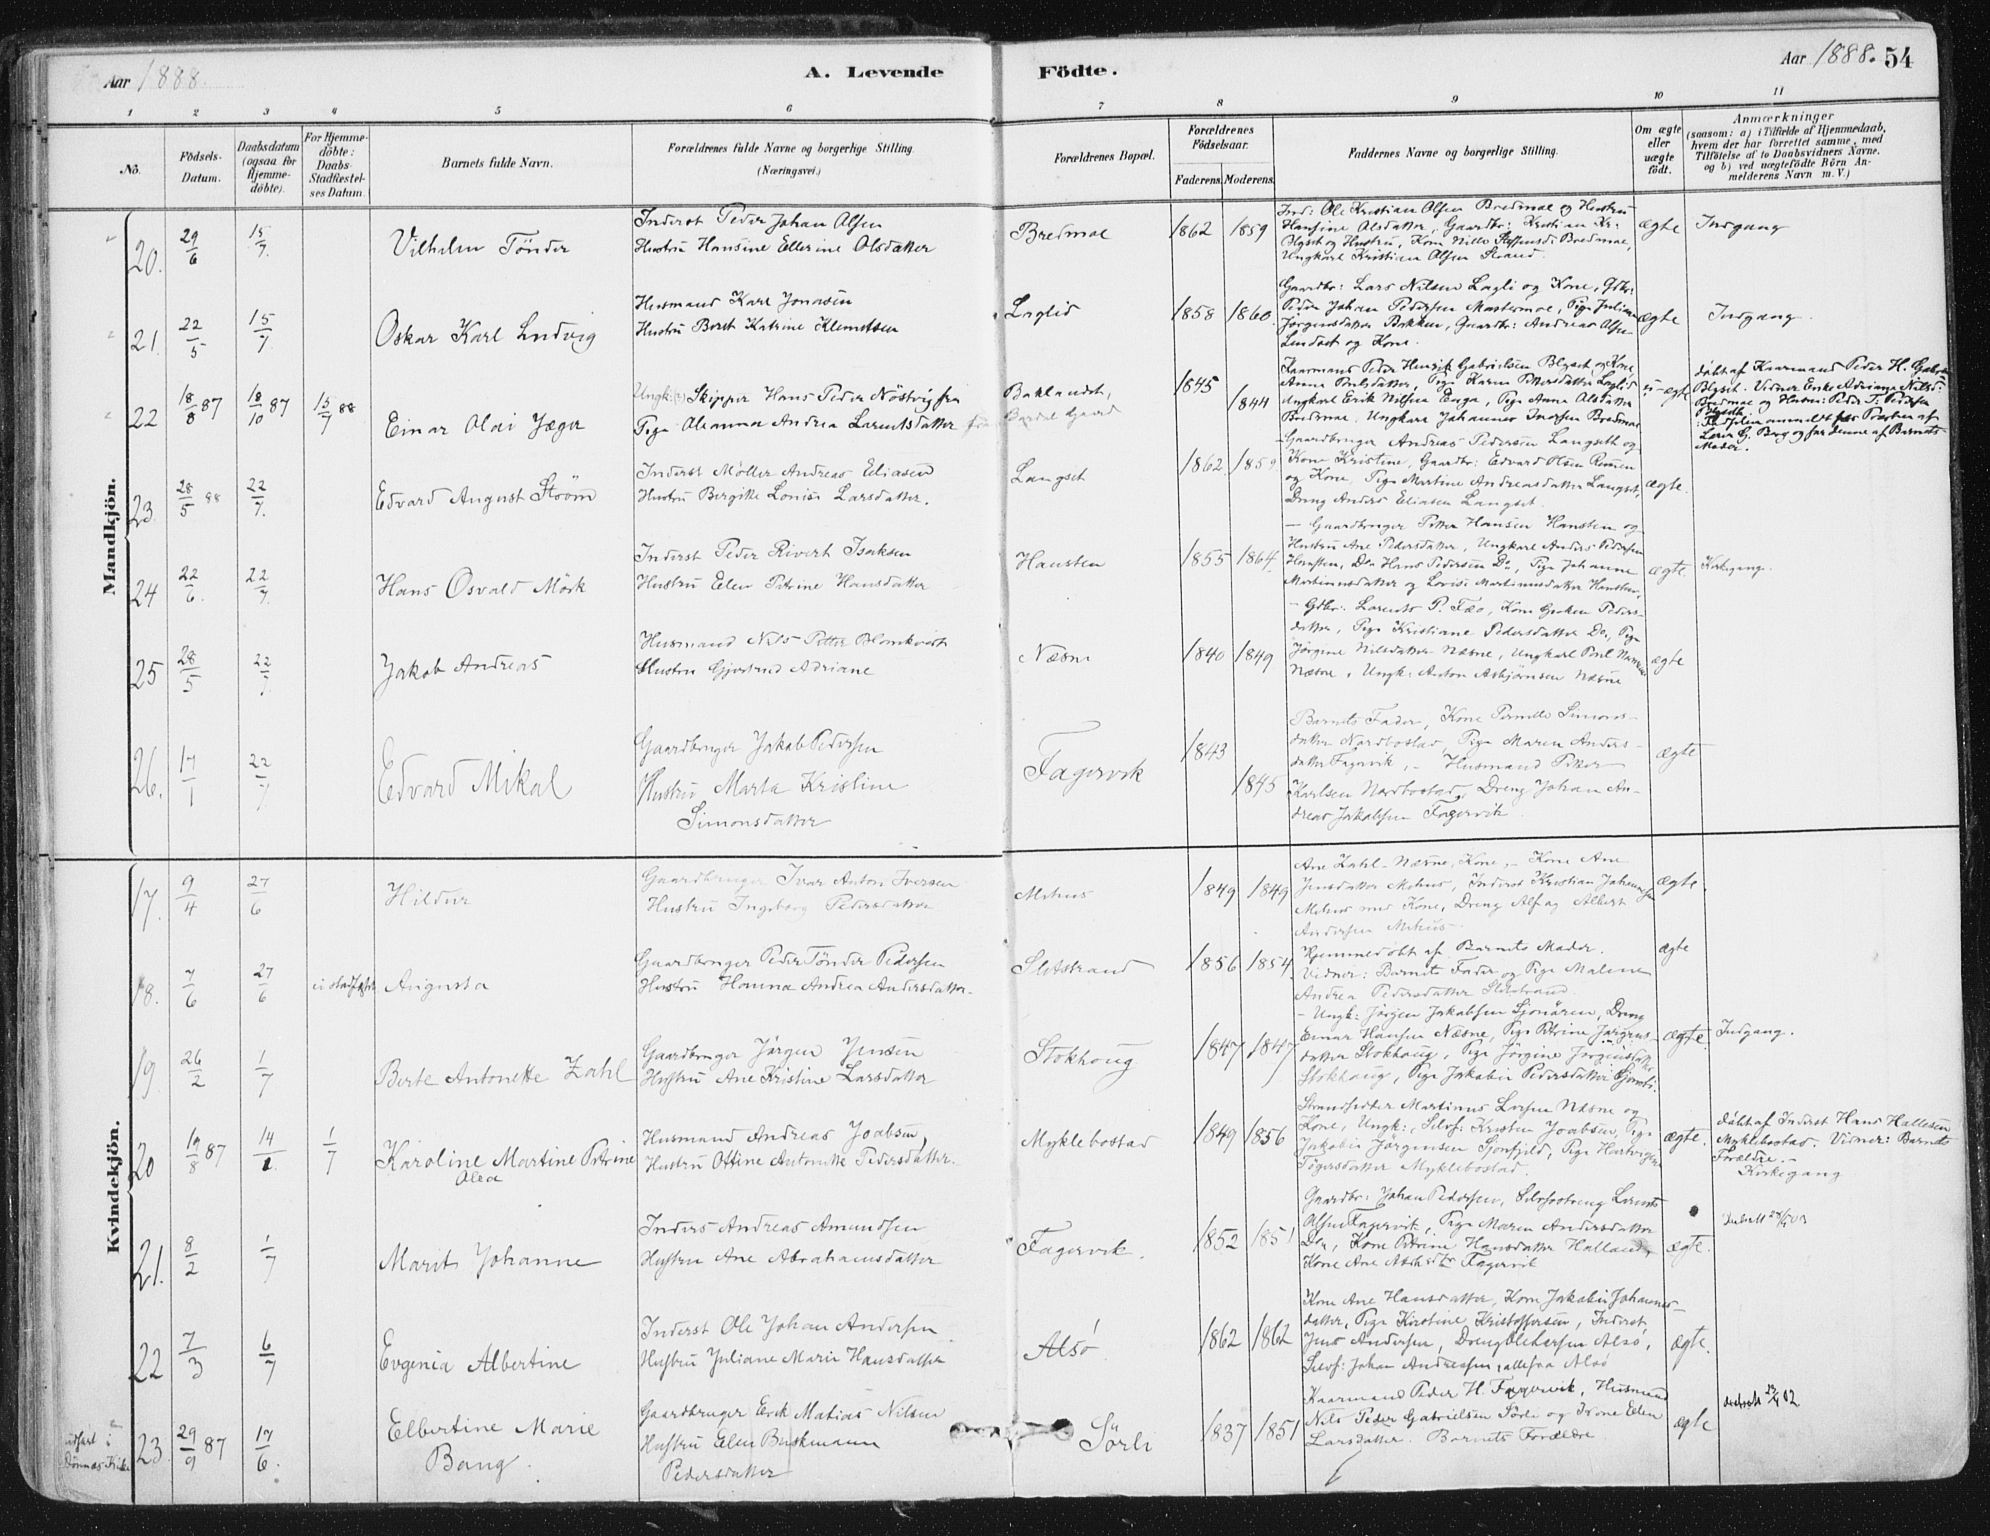 Aar 1888.
A. Levende
Födte.
Aar 1888. 54
1 2 3 4 5 6 7 8 9 10 11
No.
Födsels-Datum.
Daabsdatum (ogsaa for Hjemme-döbte).
For Hjemme-döbte: Daabs-Stadfæstel-ses Datum.
Barnets fulde Navn.
Forældrenes fulde Navne og borgerlige Stilling. (Næringsvei.)
Forældrenes Bopæl.
Forældrenes Födselsaar.
Faderens. Moderens.
Faddernes Navne og borgerlige Stilling.
Om ægte eller uægte født.
Anmærkninger
(saasom: a) i Tilfælde af Hjemmedaab, hvem der har forrettet samme, med Tilföielse af to Daabsvidners Navne. og b) ved uægtefödte Börn An-melderens Navn m. V.)
Mandkjön.
20. 29/6 15/7. Vilhelm Tönder
Inderst Peder Johan Olsen
Hustru Hansine Ellerine Olsdatter
Bredmoe 1862 1859
Ind: Ole Kristian Olsen Bredmoe og Hustru
Hansine Olsdatter, Gaardbr: Kristian Kr:
Ungkarl Kristian Olsen Strand.
ægte Indgang
21. 22/5 15/7. Oskar Karl Ludvig
Husmand Karl Jonasen
Hustru Beret Katrine Klemetsen
Laglid 1858 1860.
Gaardbr: Lars Nilsen Lagli og Kone, Gdbr:
Peder Johan Pedersen Mastermoe, Pige Juliane
Jørgensdatter Bakken, Gaardbr: Andreas Olsen
og Kone.
ægte Indgang.
22 18/8 87 18/10 87 15/7 88 Einar Olai Jæger
Ungk: Skipper Hans Peder Nöstvig fra
Pige Oleanna Andrea Larentsdatter
Baklandet, 1845 1844
Kaarmand Peder Henrik Gabrielsen Blyset, og Kone
Anna Poulsdatter, Pige Karen Pettersdatter Laglid
Ungkarl Erik Nilsen Enga, Pige Anna Olsdatter
Bredmoe. Ungkarl Johannes Bredmoe
u-ægte
döbt af Kaarmand Peder H. Gabr:
Blyset. Vidner Enke Adriana Nilsd:
Bredmoe og Husm: Peder T. Pedersen
Moder.
23. 28/5 88 22/7. Edvard August Ström
Inderst Møller Andreas Eliasen
Hustru Bergitte Lovise Larsdatter.
Langset 1862. 1859
Gaardbruger Andreas Pedersen Langseth og
Kone Kristine, Gaardbr: Edvard Olsen
og Kone, Pige Martine Andreasdatter Langset,
Dreng Anders Eliasen Langset.
ægte.
24 22/6. 22/7. Hans Osvald Mörk
Inderst Peder Rivert Isaksen
Hustru Elen Petrine Hansdatter
Hansten 1855 1864
– Gaardbruger Petter Hansen Hansten og
Hustru Ane Pedersdatter, Ungkarl Anders Pedersen
Hansten, Do Hans Pedersen Do, Pige Johanne
Martinusdatter og Lovise Martinusdatter Hansten.
ægte. Kirkegang.
25 28/5 22/7 Jakob Andreas
Husmand Nils Petter Blomkvist
Hustru Gjertrud Adriane
Næsne 1840 1849
– Gdbr: Larents P. Fæø, Kone Peders-
datter, Pige Kristiane Pedersdatter Do, Pige
Jørgine Nilsdatter Næsne, Ungkarl Poul
Næsne, Ungk: Anton Asbjørnsen Næsne
ægte
26. 17/1 22/7 Edvard Mikal
Gaardbruger Jakob Pedersen
Hustru Marta Kristine
Simonsdatter
Fagervik 1843 1845
Barnets Fader, Kone Pernille Simons-
datter Nordbostad, Pige Maren Anders-
datter Fagervik, – Husmand Petter
Karlsen Nordbostad, Dreng Johan An-
dreas Jakobsen Fagervik
ægte
Kvindekjön.
17. 9/4 27/6 Hildur
Gaardbruger Ivar Anton Iversen
Hustru Ingeborg Pedersdatter
Mehus 1849 1849
Ane Zahl-Næsne, Kone, – Kone Ane
Jensdatter Mehus, Inderst Kristian Johannesen
Mehus med Kone, Dreng Alf og Albert
Andersen Mehus.
ægte.
18. 7/6 27/6 Augusta
Gaardbruger Peder Tönder Pedersen
Hustru Hanna Andrea Andersdatter.
Sletstrand 1856 1854
Hjemmedöbt af Barnets Moder.
Vidner: Barnets Fader og Pige Malene
Andrea Pedersdatter Sletstrand.
ægte
19. 26/2 1/7 Berte Antonette Zahl
Gaardbruger Jørgen Jensen
Hustru Ane Kristine Larsdatter
Stokhoug 1847 1847
– Ungk: Jörgen Jakobsen Sjonåren, Dreng
Einar Hansen Næsne, Pige Petrine Jørgens-
datter Stokhoug, Pige Jörgine Jörgensdatter
Stokhoug, Pige Jakobie Pedersdatter
ægte. Indgang.
20 19/8 87 14/1 1/7 Karoline Martine Petrine
Olea
Husmand Andreas Joabsen,
Hustru Ottine Antonette Pedersdatter.
Myklebostad 1849 1856
Strandsidder Martinus Næsne og
Kone, Ungk: Selvf: Kristen Joabsen, Pige
Jakobie Jörgensen Sjonfjeld, Pige
Myklebostad.
ægte.
döbt af Inderst Hans Hallesen
Myklebostad. Vidner: Barnets
Forældre. –
Kirkegang
21. 8/2 1/7 Marit Johanne
Inders Andreas Amundsen
Hustru Ane Abrahamsdatter
Fagervik. 1852 1851
Gaardbr: Johan Pedersen, Larents
Olsen Fagervik, Pige Maren Andersdatter
Do, Kone Petrine Hansdatter
Kone Ane Fagervik
ægte.
22 7/3 6/7 Evgenia Albertine
Inderst Ole Johan Andersen
Hustru Juliane Marie Hansdatter
Alsø 1862 1862
Kone Ane Hansdatter, Kone Jakobie Johannes-
datter, Pige Kirstine Kristoffersen, Inderst
Jens Andersen, Alsø,
Selvf: Johan Andreassen, allesaa Alsø
ægte.
23. 29/9 87 17/6. Elbertine Marie
Bang.
Gaardbruger Erik Matias Nilsen
Hustru Elen Buskmann
Pedersdatter
Sörli 1837 1851
Kaarmand Peder H. Fagervik, Husmand
Nils Peder Gabrielsen Sörli og Kone Elen
Larsdatter. Barnets Forældre.
ægte
Dönnes Kirke